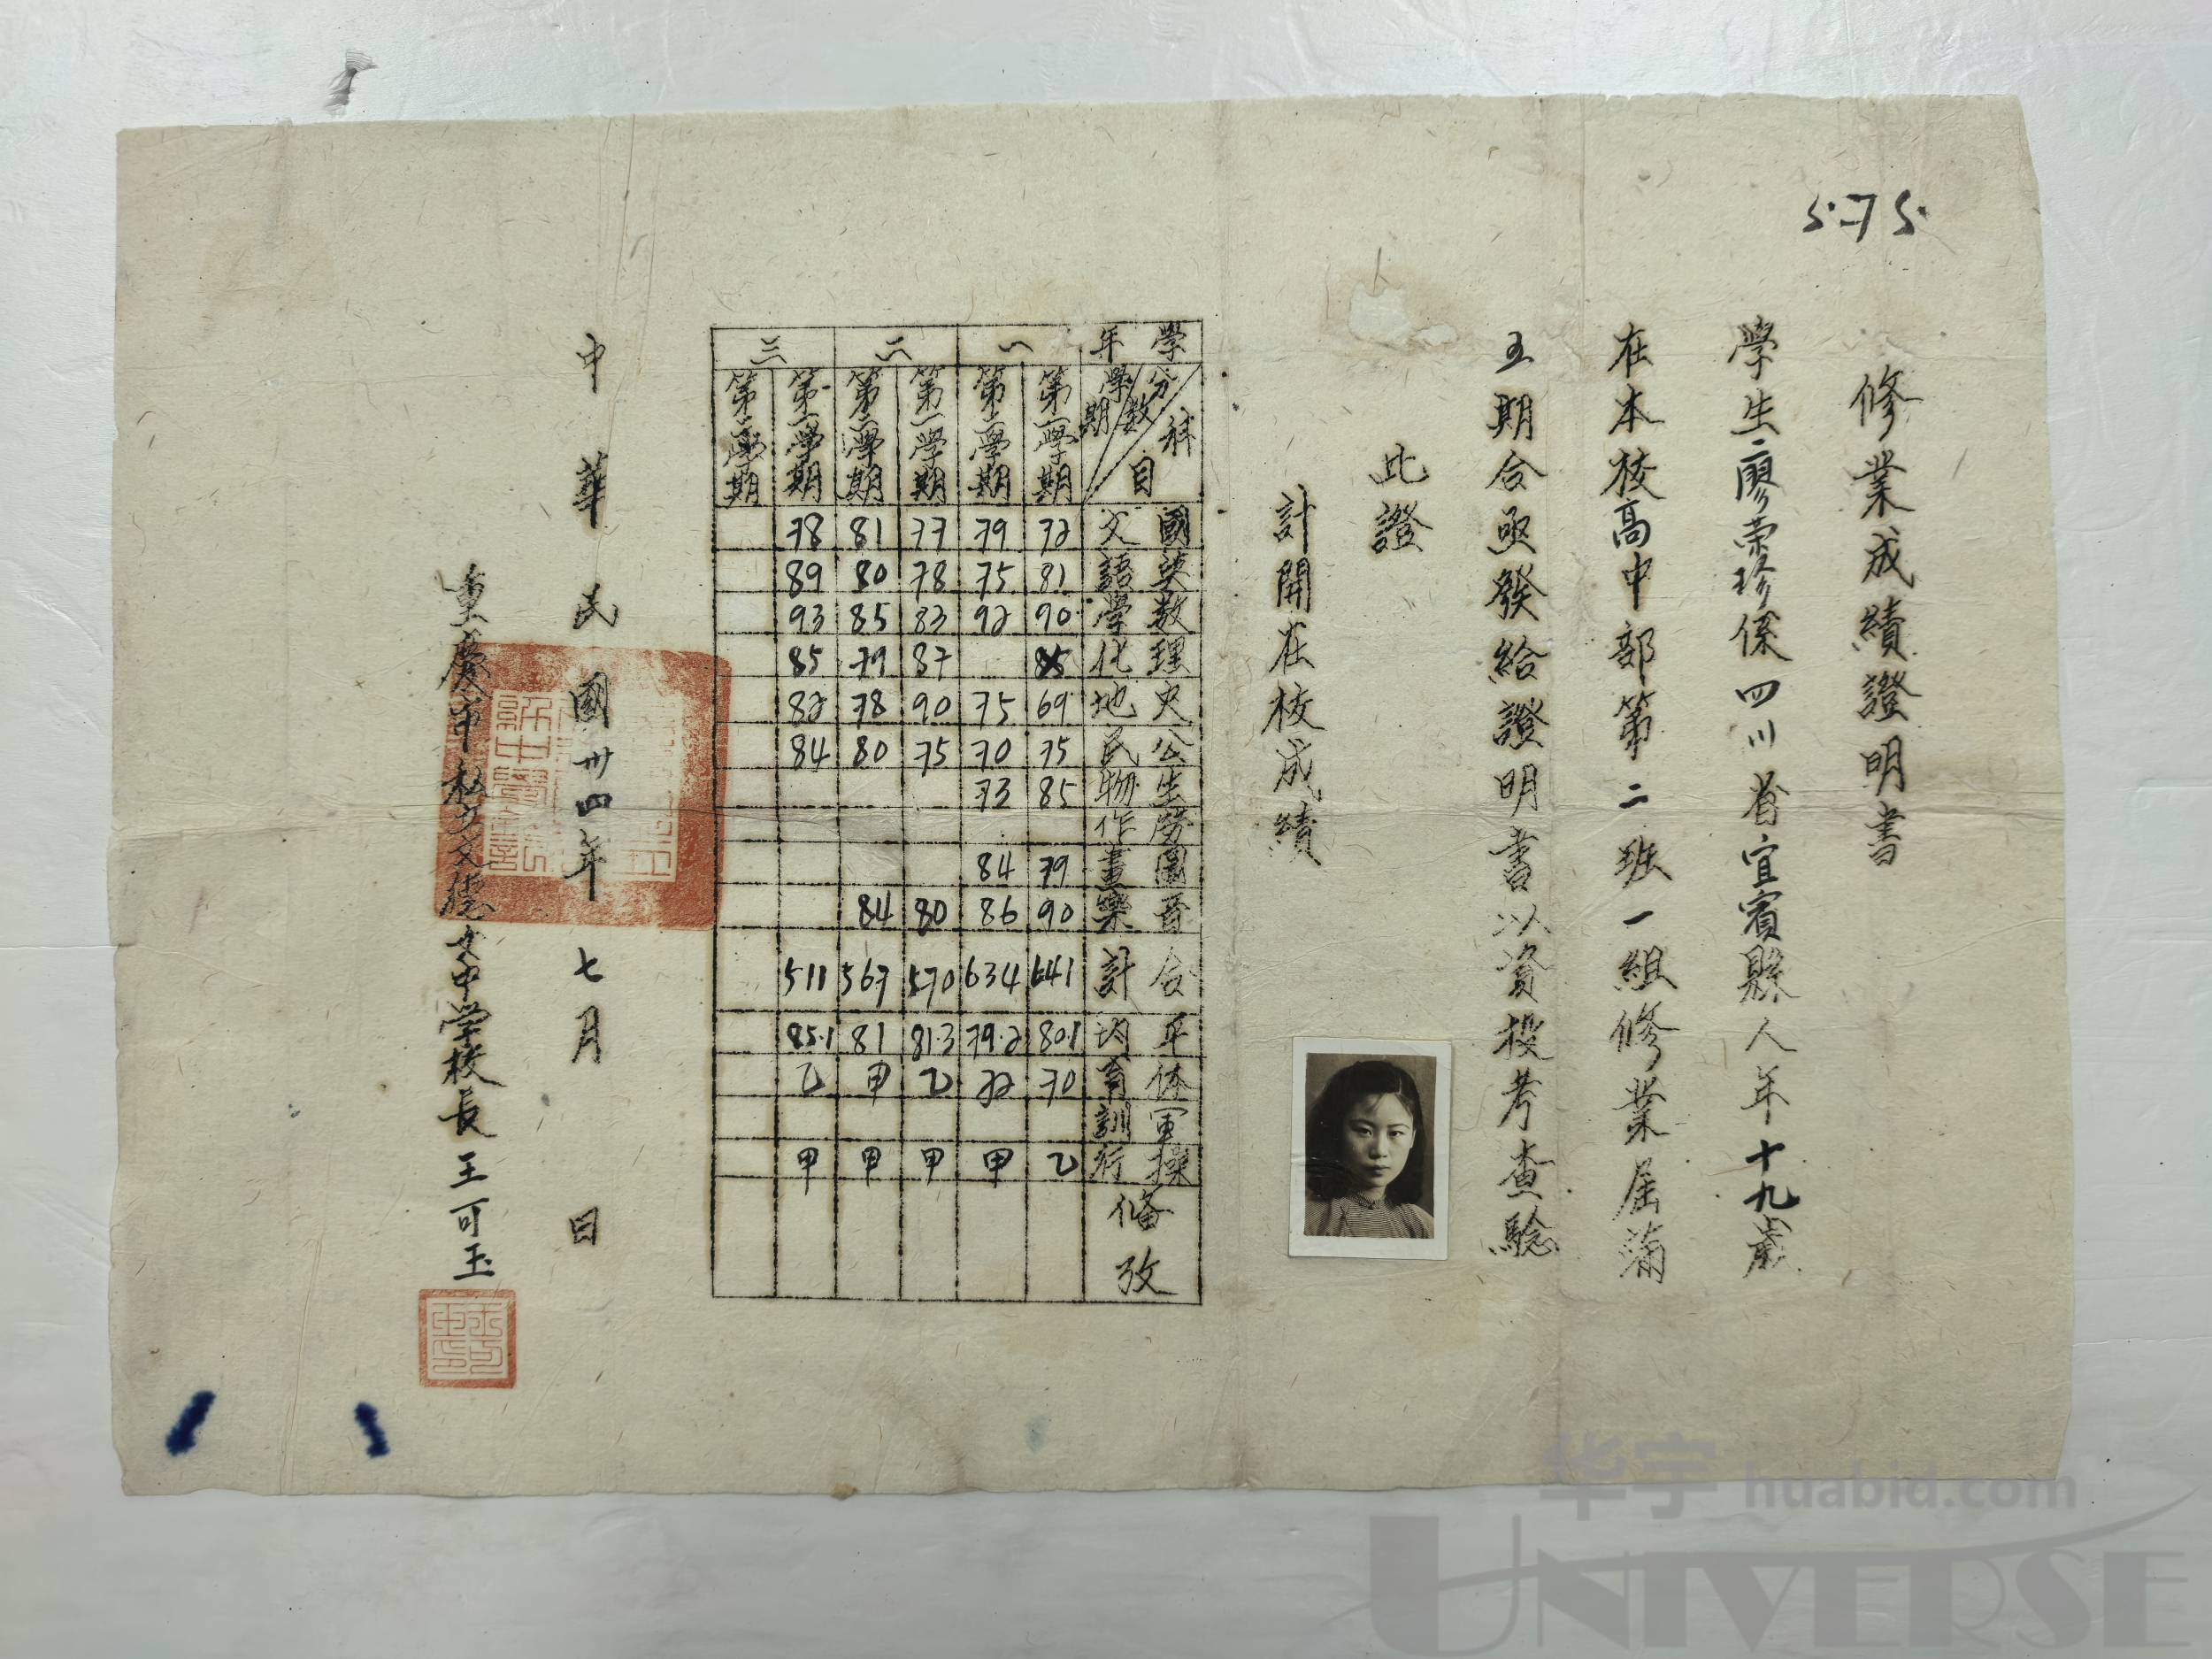 5.75.
修業成績證明書
學生廖荣珍係四川省宜賓縣人年十九歲
在本校高中部第二班一組修業屆滿
五期合亟發給證明書以資投考查驗
此證
計開在校成績
學年 一 二 三
分數 科目 學期 第一學期 第二學期 第一學期 第二學期 第一學期 第二學期
國文 72 79 77 81 78
英語 81 75 78 80 89
数學 90 92 83 85 93
理化 85 87 79 85
史地 69 75 90 78 82
公民 75 70 75 80 84
生物 85 73
勞作
圖畫 79 84
音樂 90 86 80 84
合計 641 634 570 567 511
平均 80.1 79.2 81.3 81 85.1
体育 70 72 乙 甲 乙
軍訓
操行 乙 甲 甲 甲 甲
俻攷
中華民國卅四年七月 日
重慶市私立文德女中学校長王可玉
华宇 huabid.com
UNIVERSE